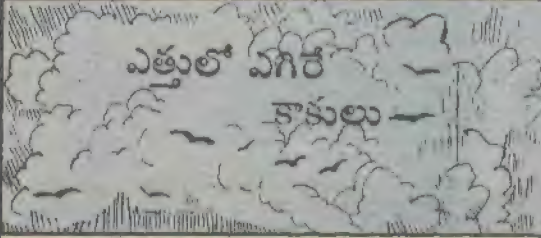 ఎత్తులో ఎగిరే
కాకులు